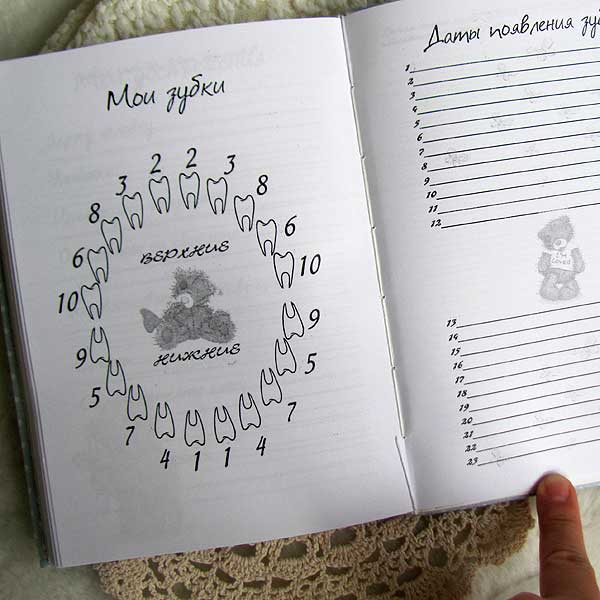 Мои зубки
2 2
3 3
8 8
6 6
10 10
верхние
нижние
9 9
5 5
7 7
4 4
1 1
Даты появления
1
2
3
4
5
6
7
8
9
10
11
12
I'm
Loved
13
14
15
16
17
18
19
20
21
22
23